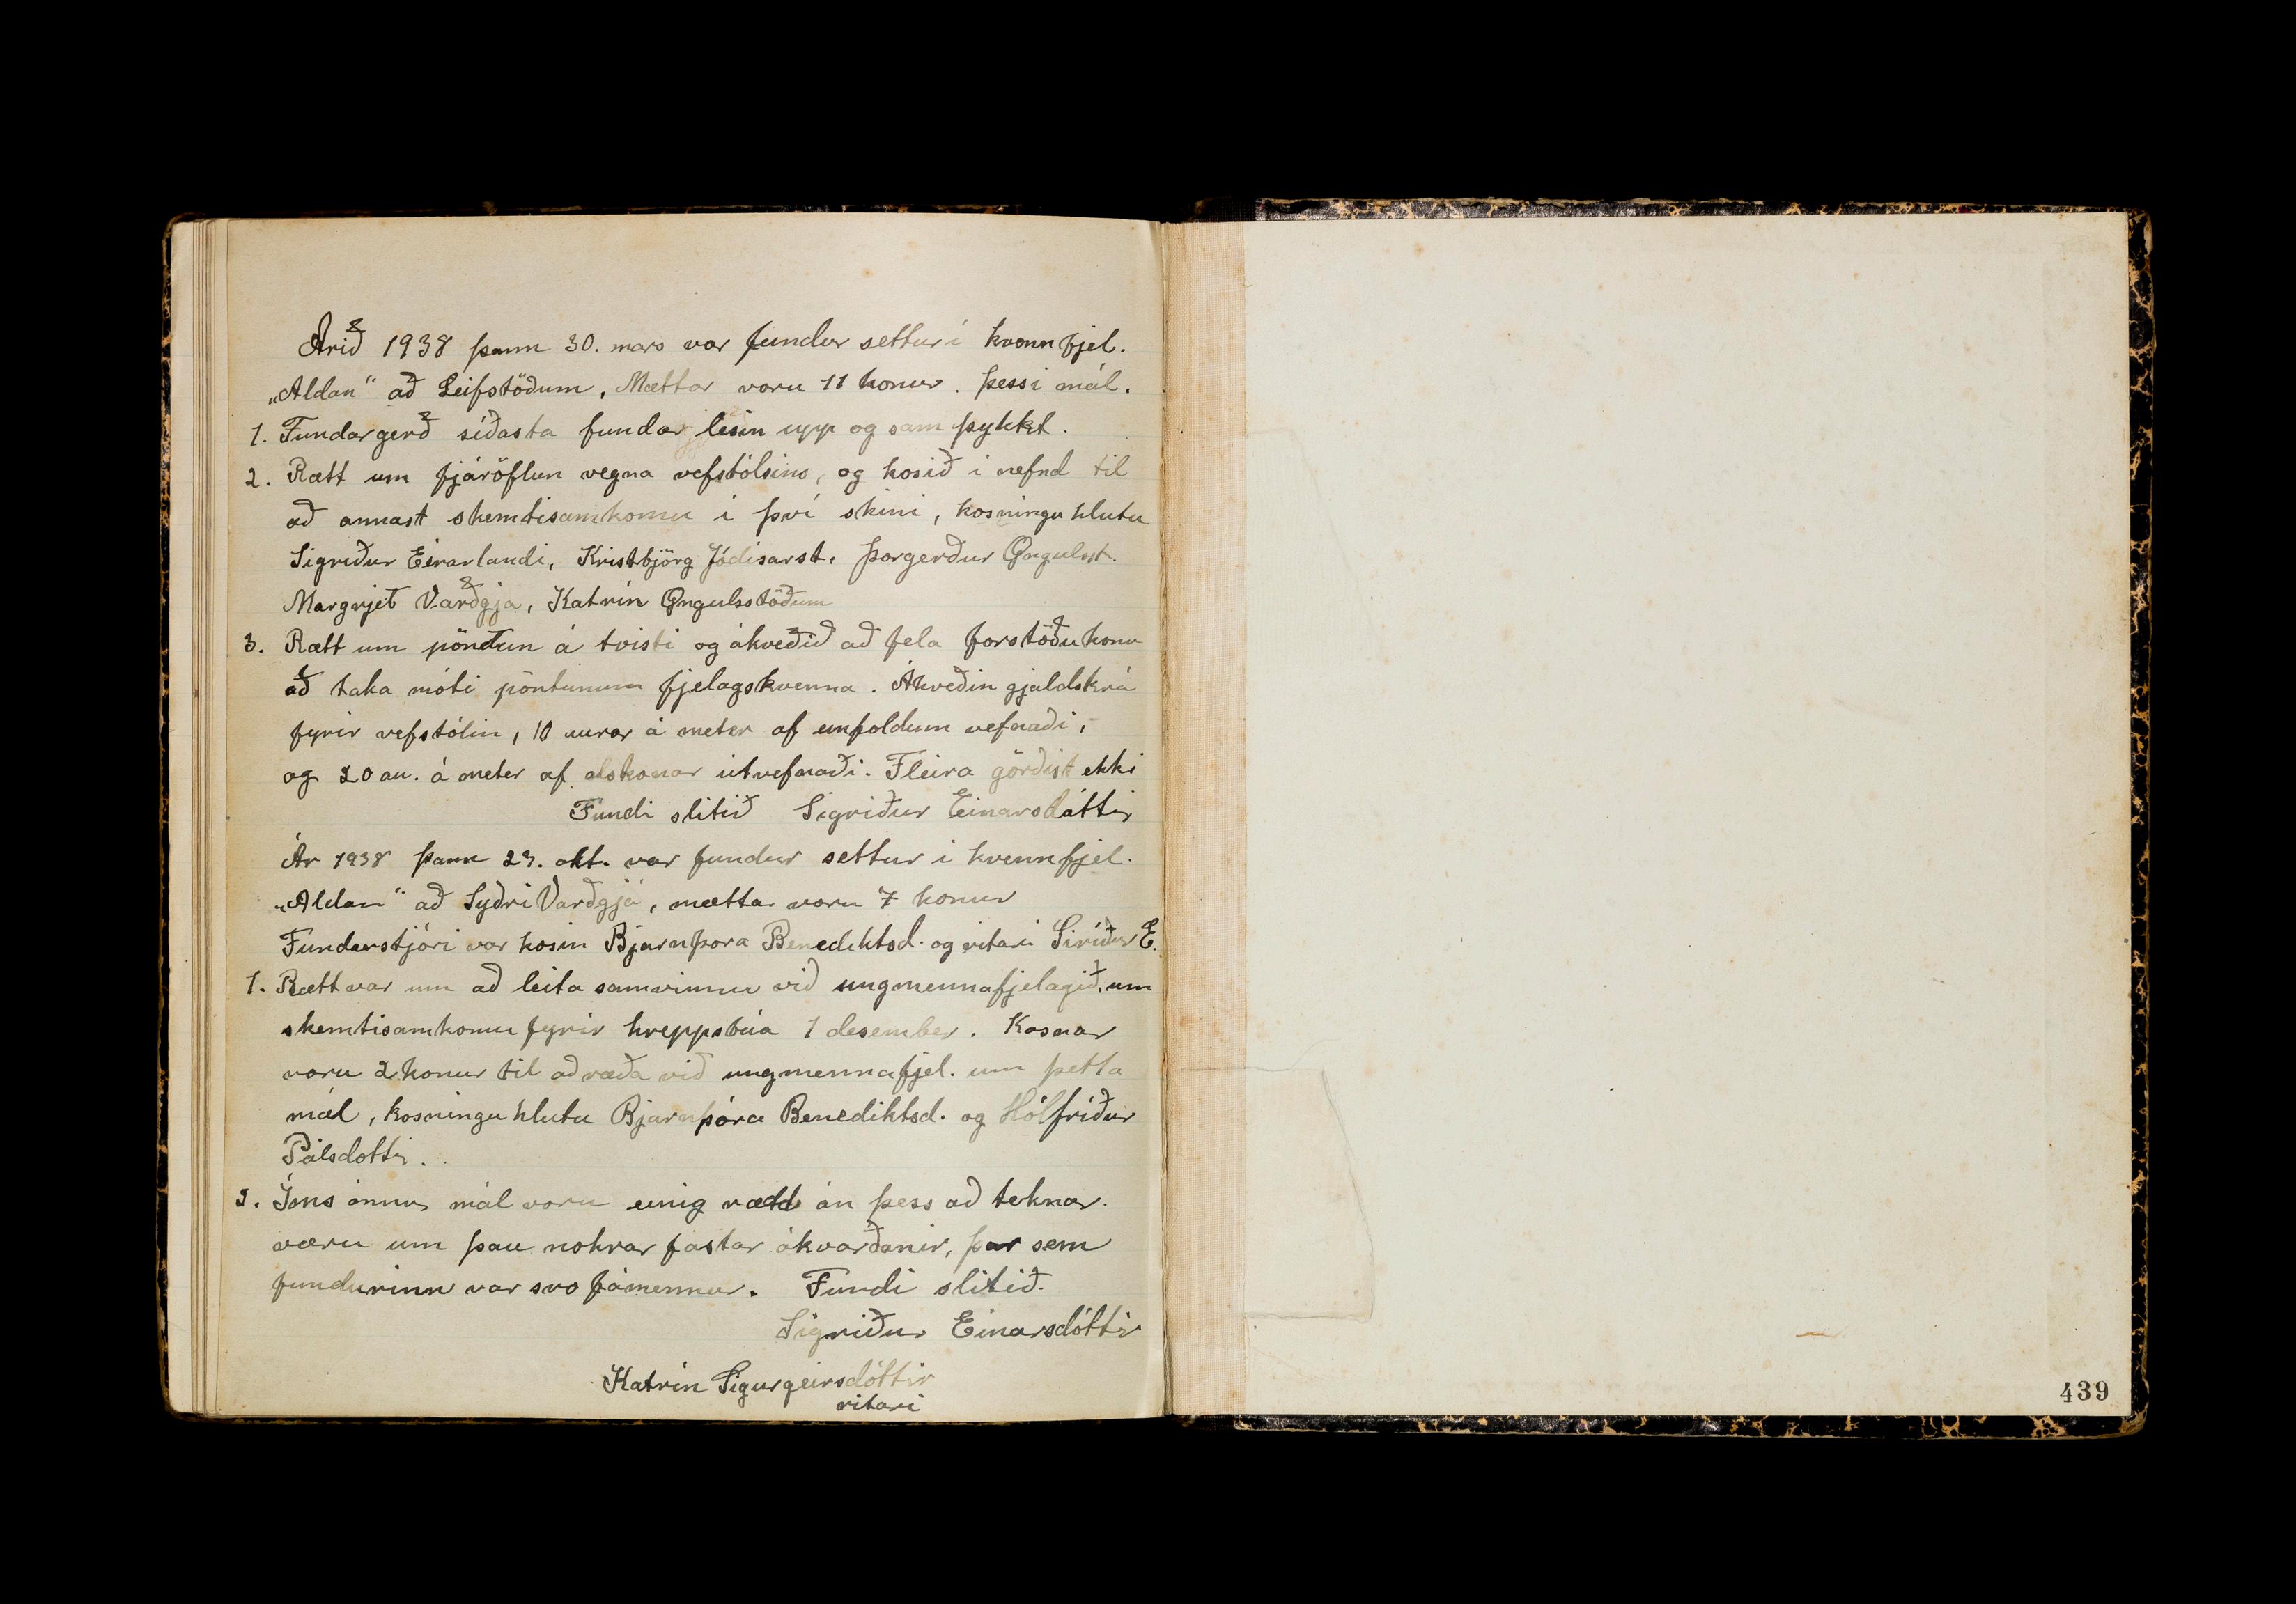 Árið 1938 þann 30. mars var fundur settur í kvennfjel.
„Aldan" að Leifstöðum, Mættar voru 11 konur. Þessi mál.
1. Fundargerð síðasta fundar lesin upp og samþykkt.
2. Rætt um fjáröflun vegna vefstólsins, og kosið i nefnd til
að annast skemtisamkomu i því skini, kosningu hlutu
Sigriður Eirarlandi, Kristbjörg Jódisarst. Þorgerður Öngulsst.
Margrjet Varðgjá, Katrín Öngulsstöðum
3. Rætt um pöntun á tvisti og ákveðið að fela forstöðukonu
að taka móti pöntunum fjelagskvenna. Ákveðin gjaldskrá
fyrir vefstólin, 10 aurar á meter af einföldum vefnaði,
og 20 au. á meter af alskonar útvefnaði. Fleira görðist ekki
Fundi slitið Sigriður Einarsdóttir
Ár 1938 þann 23. okt. var fundur settur i kvennfjel.
„Aldan" að Syðri Varðgjá, mættar voru 7 konur
Fundarstjóri var kosin Bjarnþora Benediktsd. og ritari Siríður E.
1. Rætt var um að leita samvinnu við ungmennafjelagið, um
skemtisamkomu fyrir hreppsbúa 1 desember. Kosnar
voru 2 konur til að ræða við ungmennafjel. um þetta
mál, kosningu hlutu Bjarnþóra Benediktsd. og Hólfríður
Pálsdottir.
2. Íms önnur mál voru einig rædd án þess að teknar
væru um þau nokrar fastar ákvarðanir, þar sem
fundurinn var svo fámennur. Fundi slitið.
Sigriður Einarsdóttir
Katrín Sigurgeirsdóttir
ritari
439